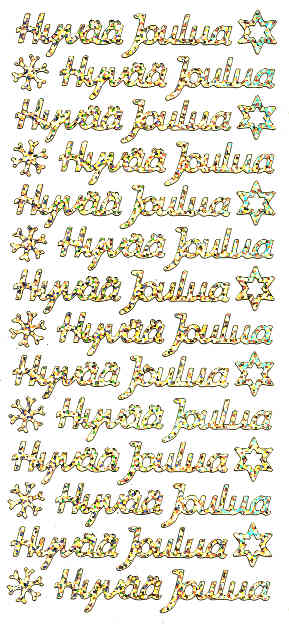 Hyvää Joulua
Hyvää Joulua
Hyvää Joulua
Hyvää Joulua
Hyvää Joulua
Hyvää Joulua
Hyvää Joulua
Hyvää Joulua
Hyvää Joulua
Hyvää Joulua
Hyvää Joulua
Hyvää Joulua
Hyvää Joulua
Hyvää Joulua